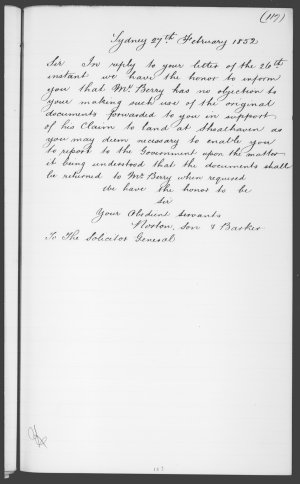 (117)
Sydney 27th February 1852
Sir In reply to your letter of the 26th
instant we have the honor to inform
you that Mr. Berry has no objection to
your making such use of the original
documents forwarded to you in support
of his Claim to land at Shoalhaven as
you may deem necessary to enable you
to report to the Government upon the matter
it being understood that the documents shall
be returned to Mr Berry when required
We have the honor to be
Sir
Your Obedient Servants
Norton, Son & Barker
To The Solicitor General